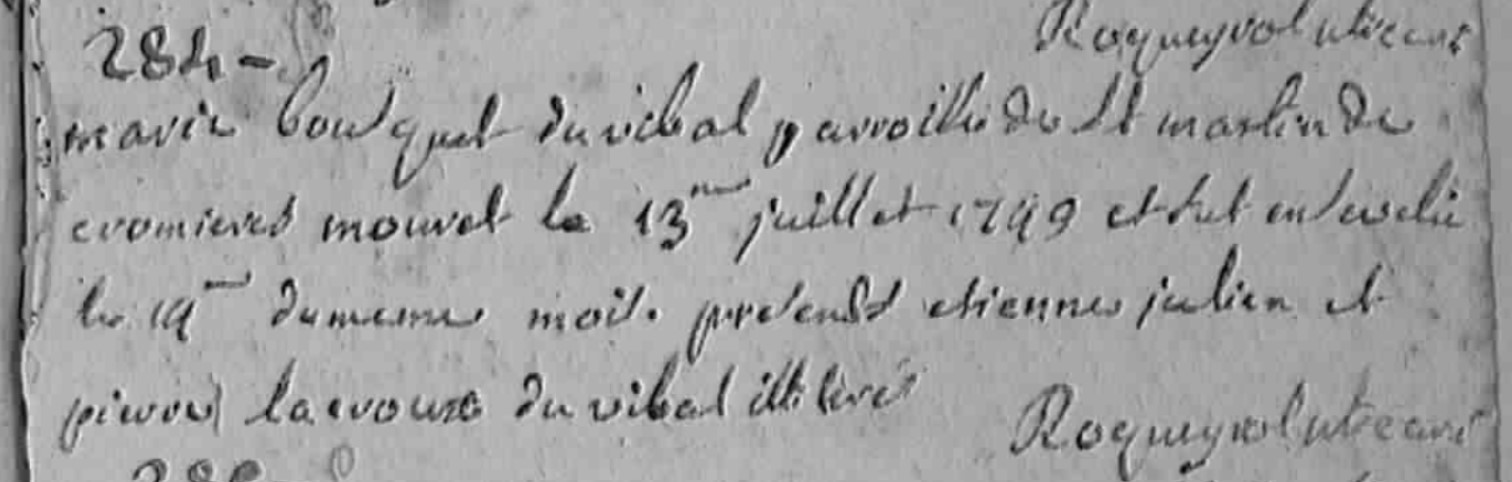 Roqueyrol vicaire
284 -
marie bousquet du vibal parroisse de St martin de
cromieres mourut le 13me juillet 1749 et fut ensevelie
le 14me du meme mois. presents etienne julien et
pierre lacroux du vibal illiterés
Roqueyrol vicaire